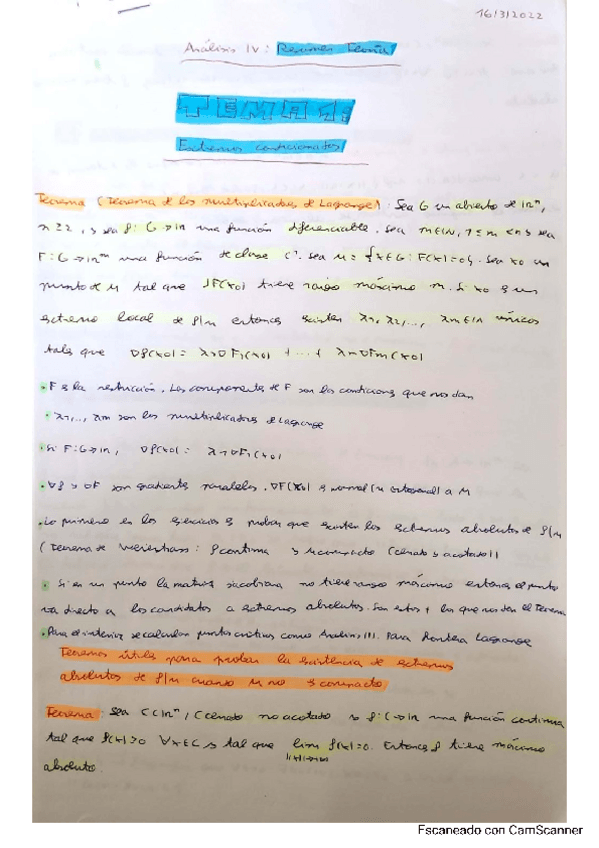 16/3/2022
Análisis IV: Resumen Teoría
TEMA 1:
Extremos condicionados
Teorema (Teorema de los multiplicadores de Lagrange): Sea G un abierto de ℝⁿ,
n≥2, y sea f: G→ℝ una función diferenciable. Sea m∈ℕ, 1≤m<n y sea
F: G→ℝᵐ una función de clase C¹. Sea M = {x∈G: F(x)=0}. Sea x0 un
punto de M tal que JF(x0) tiene rango máximo m. Si x0 es un
extremo local de f|M entonces existen λ1, λ2,..., λm∈ℝ únicos
tales que ∇f(x0) = λ1∇F1(x0) + ... + λm∇Fm(x0)
· F es la restricción. Las componentes de F son las condiciones que nos dan
· λ1,..., λm son los multiplicadores de Lagrange
· Si F: G→ℝ, ∇f(x0) = λ1∇F1(x0)
· ∇f y ∇F son gradientes paralelos. ∇F(x0) es normal (u ortogonal) a M
· Lo primero en los ejercicios es probar que existen los extremos absolutos de f|M
(Teorema de Weierstrass: f continua y M compacto (cerrado y acotado))
· Si en un punto la matriz jacobiana no tiene rango máximo entonces el punto
va directo a los candidatos a extremos absolutos. Son estos + los que nos den el Teorema
· Para el interior se calculan puntos críticos como Análisis III. Para frontera Lagrange
Teoremas útiles para probar la existencia de extremos
absolutos de f|M cuando M no es compacto
Teorema: Sea C⊂ℝⁿ, C cerrado no acotado y f: C→ℝ una función continua
tal que f(x)>0 ∀x∈C y tal que lim f(x)=0. Entonces f tiene máximo
||x||→∞
absoluto.
Escaneado con CamScanner